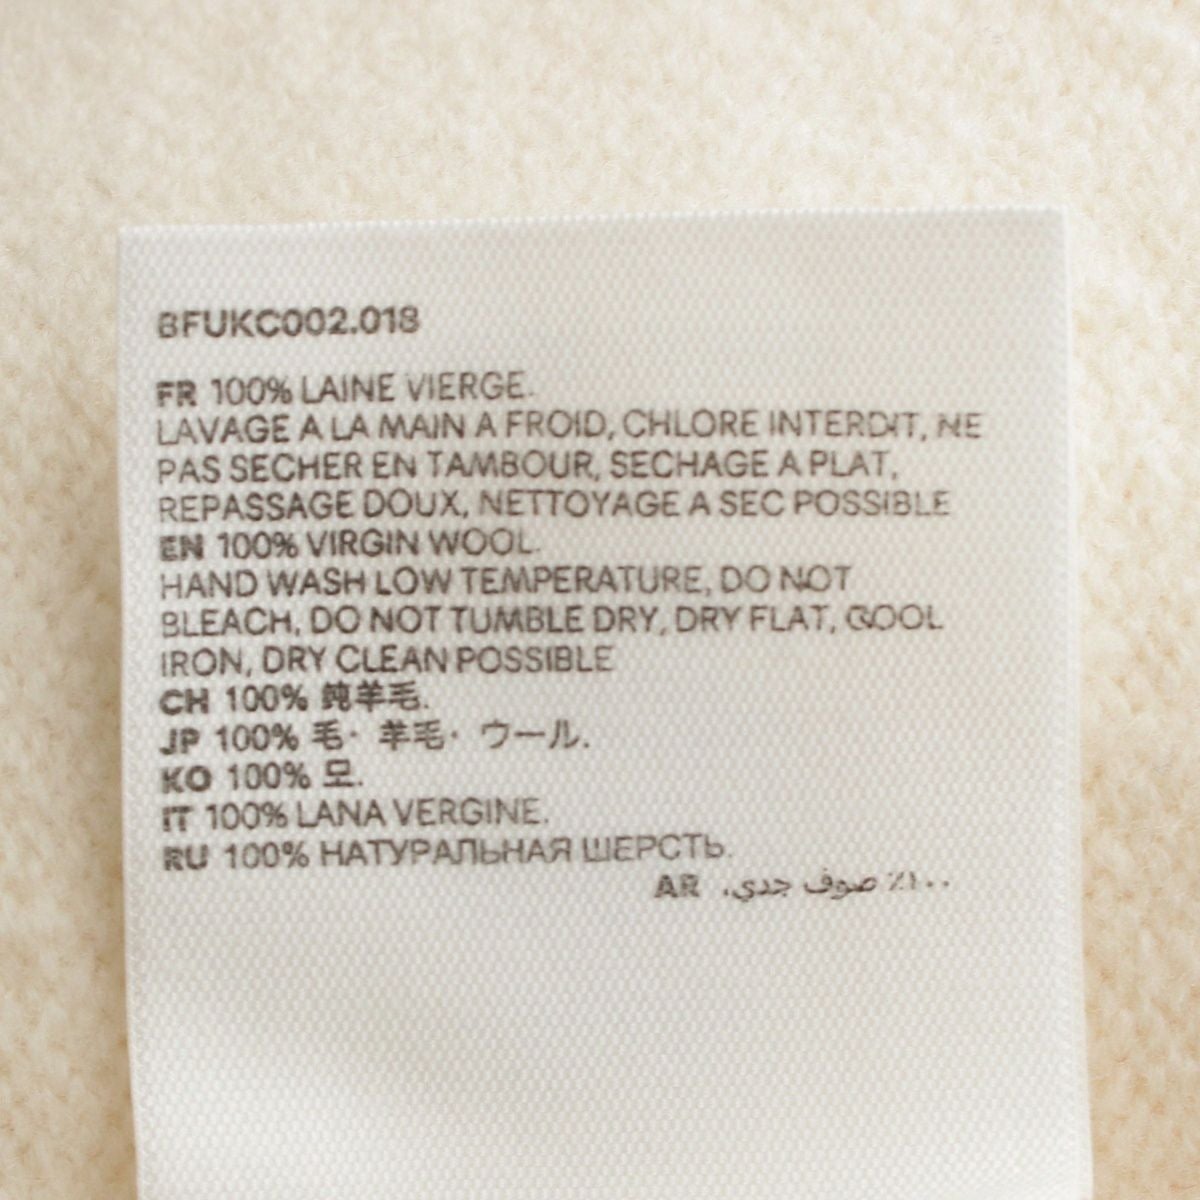 BFUKC002.018
FR 100% LAINE VIERGE.
LAVAGE A LA MAIN A FROID, CHLORE INTERDIT, NE
PAS SECHER EN TAMBOUR, SECHAGE A PLAT,
REPASSAGE DOUX, NETTOYAGE A SEC POSSIBLE
EN 100% VIRGIN WOOL.
HAND WASH LOW TEMPERATURE, DO NOT
BLEACH, DO NOT TUMBLE DRY, DRY FLAT, COOL
IRON, DRY CLEAN POSSIBLE
CH 100% 純羊毛.
JP 100% 毛・羊毛・ウール.
KO 100% 모.
IT 100% LANA VERGINE.
RU 100% НАТУРАЛЬНАЯ ШЕРСТЬ.
AR ١٠٠٪ صوف جدي.